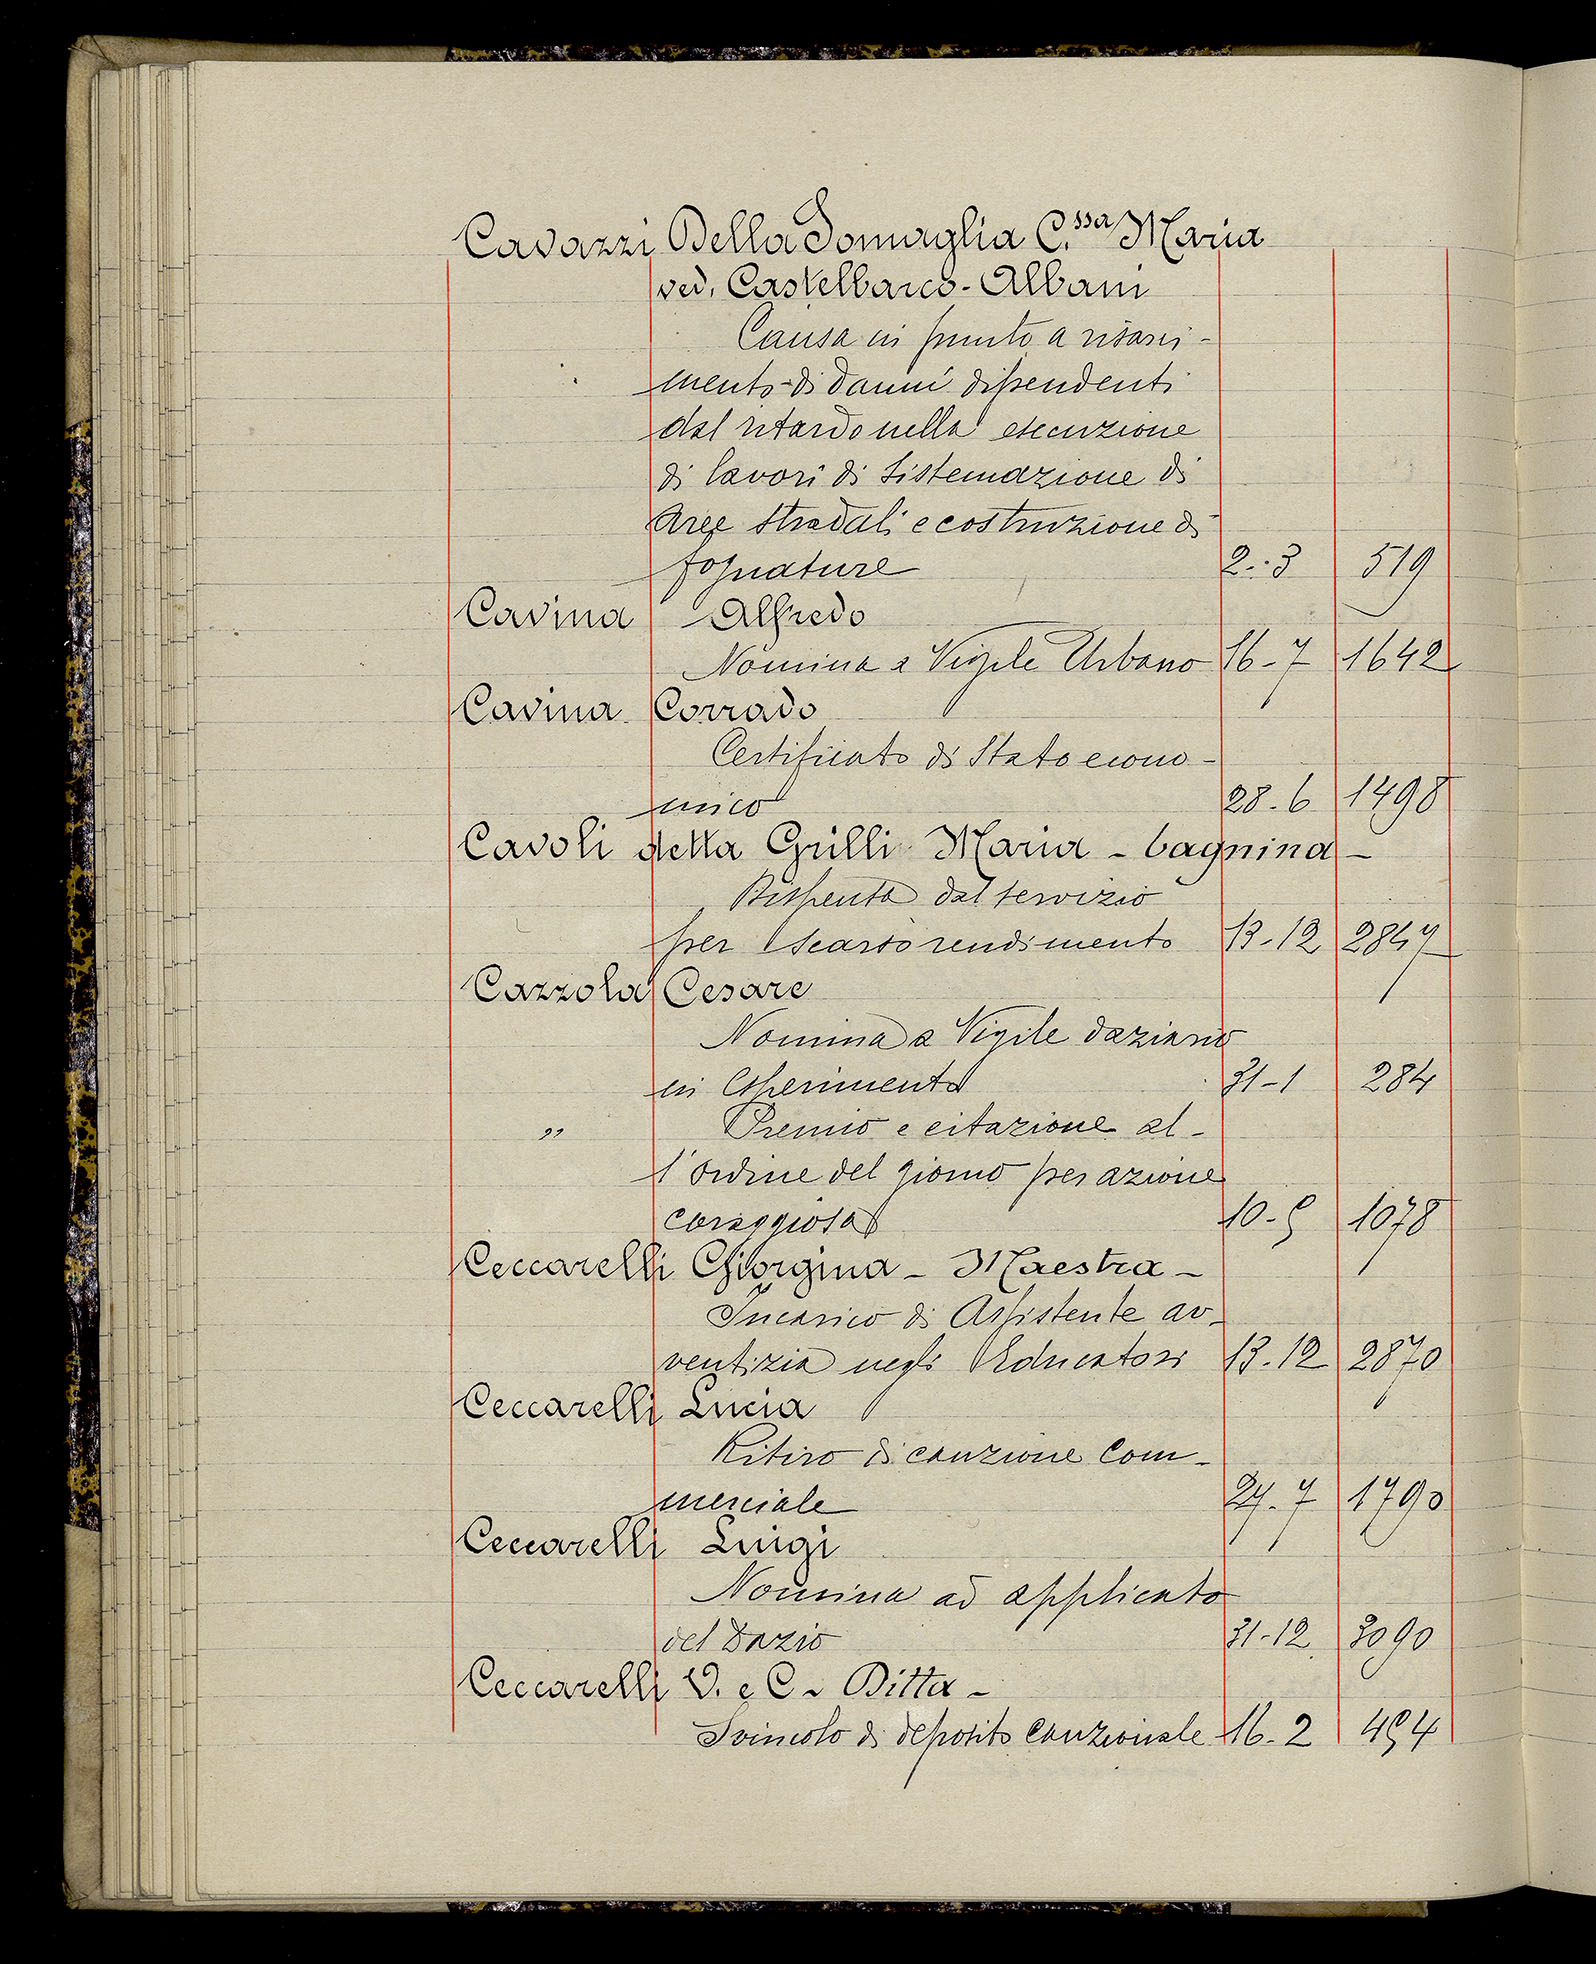 Cavazzi Della Somaglia C.ssa Maria
ved. Castelbarco-Albani
Causa in punto a risarci-
mento di danni dipendenti
dal ritardo nella esecuzione
di lavori di sistemazione di
aree stradali e costruzione di
fognature 2-3 519
Cavina Alfredo
Nomina a Vigile Urbano 16-7 1642
Cavina Corrado
Certificato di Stato econo-
mico 28-6 1498
Cavoli detta Grilli Maria - bagnina -
Dispensa dal servizio
per scarso rendimento 13-12 2847
Cazzola Cesare
Nomina a Vigile daziario
in esperimento 31-1 284
" Premio e citazione al-
l'ordine del giorno per azione
coraggiosa 10-5 1078
Ceccarelli Giorgina - Maestra -
Incarico di Assistente av-
ventizia negli Educatori 13-12 2870
Ceccarelli Lucia
Ritiro di cauzione com-
merciale 27-7 1790
Ceccarelli Luigi
Nomina ad applicato
del Dazio 31-12 3090
Ceccarelli V. e C - Ditta -
Svincolo di deposito cauzionale 16-2 454